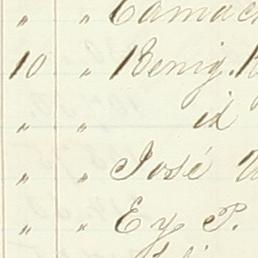 " " Camac
10 " Benig. R
" " id
" " José
" " Ey P.